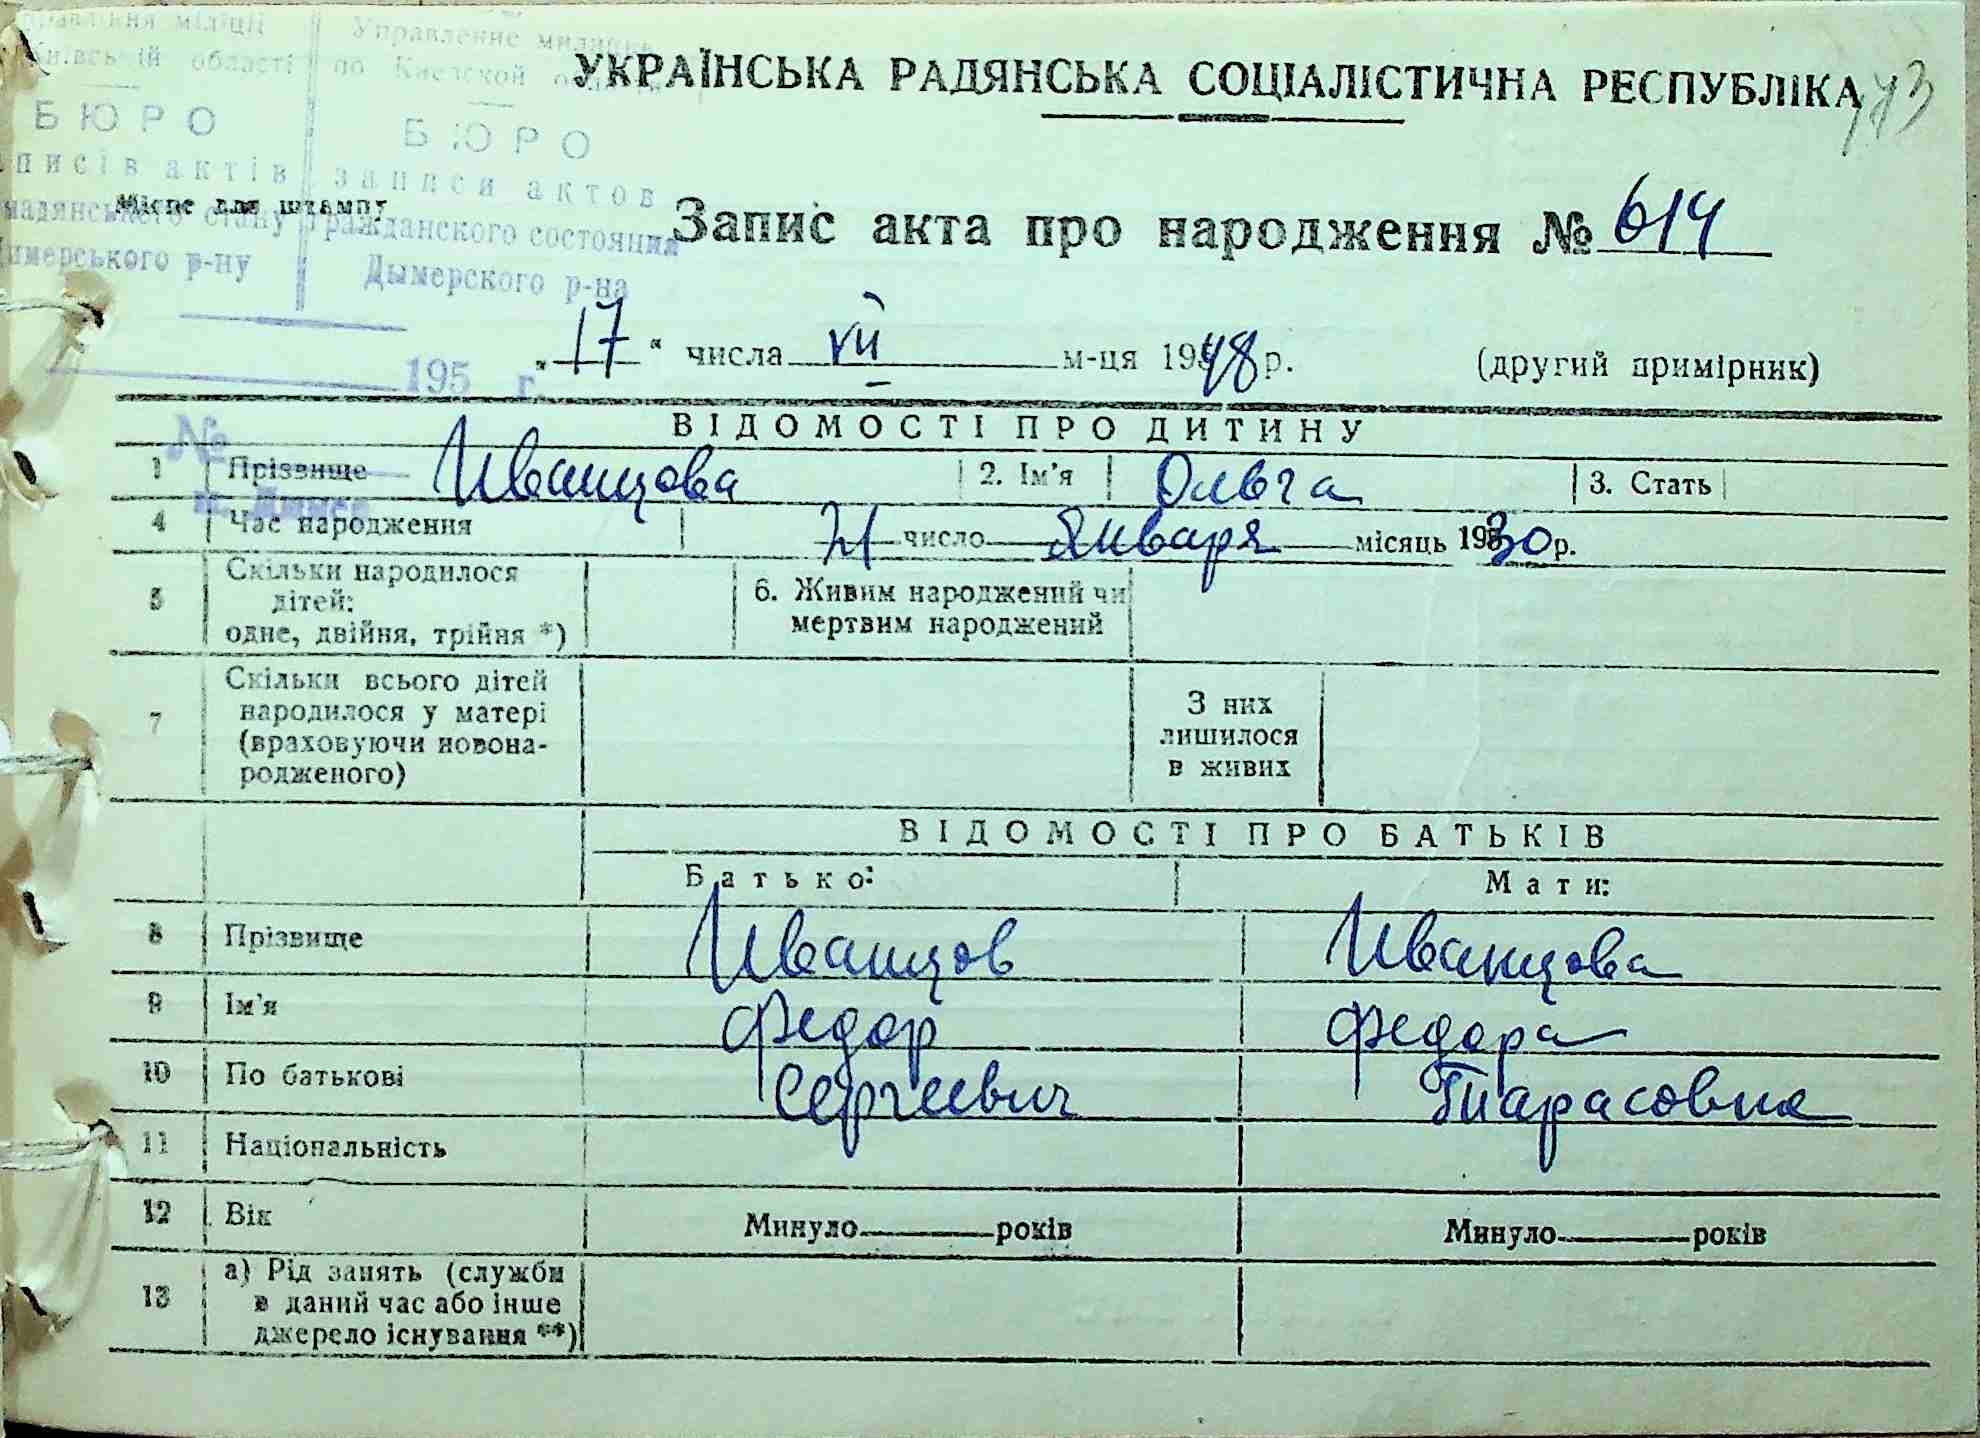 міліції
Управление милиции
області
по Киевской
УКРАЇНСЬКА РАДЯНСЬКА СОЦІАЛІСТИЧНА РЕСПУБЛІКА
БЮРО
БЮРО
актів
записи актов
Місце для штампу
стану
гражданского состояния
Запис акта про народження № 614
р-ну
Дымерского р-на
„17“ числа VII м-ця 1948 р. (другий примірник)
195 г.
ВІДОМОСТІ ПРО ДИТИНУ
№
1 Прізвище Иванцова 2. Ім'я Ольга 3. Стать
4 Час народження 21 число Января місяць 1930 р.
5 Скільки народилося
дітей:
одне, двійня, трійня *)
6. Живим народжений чи
мертвим народжений
7 Скільки всього дітей
народилося у матері
(враховуючи новона-
родженого)
З них
лишилося
в живих
ВІДОМОСТІ ПРО БАТЬКІВ
Батько: Мати:
8 Прізвище Иванцов Иванцова
9 Ім'я Федор Федора
10 По батькові Сергеевич Тарасовна
11 Національність
12 Вік Минуло років Минуло років
13 а) Рід занять (служби
в даний час або інше
джерело існування **)